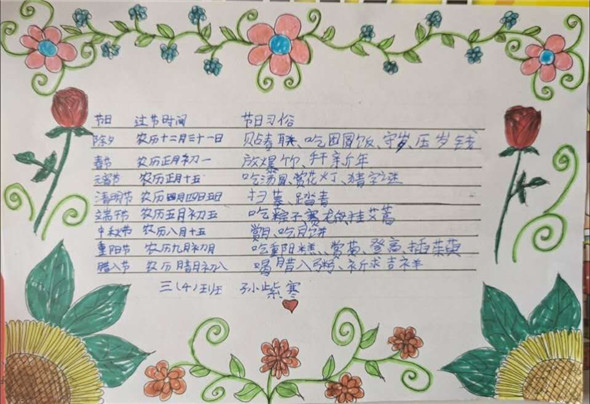 节日 过节时间 节日习俗
除夕 农历十二月三十一日 贴春联、吃团圆饭、守岁、压岁钱
春节 农历正月初一 放爆竹、拜新年
元宵节 农历正月十五 吃汤圆、赏花灯、猜字谜
清明节 农历四月四日五日 扫墓、踏青
端午节 农历五月初五 吃粽子、赛龙舟、挂艾蒿
中秋节 农历八月十五 赏月、吃月饼
重阳节 农历九月初九 吃重阳糕、赏菊、登高、插茱萸
腊八节 农历腊月初八 喝腊八粥、祈求吉祥
三(4)班 孙紫寒